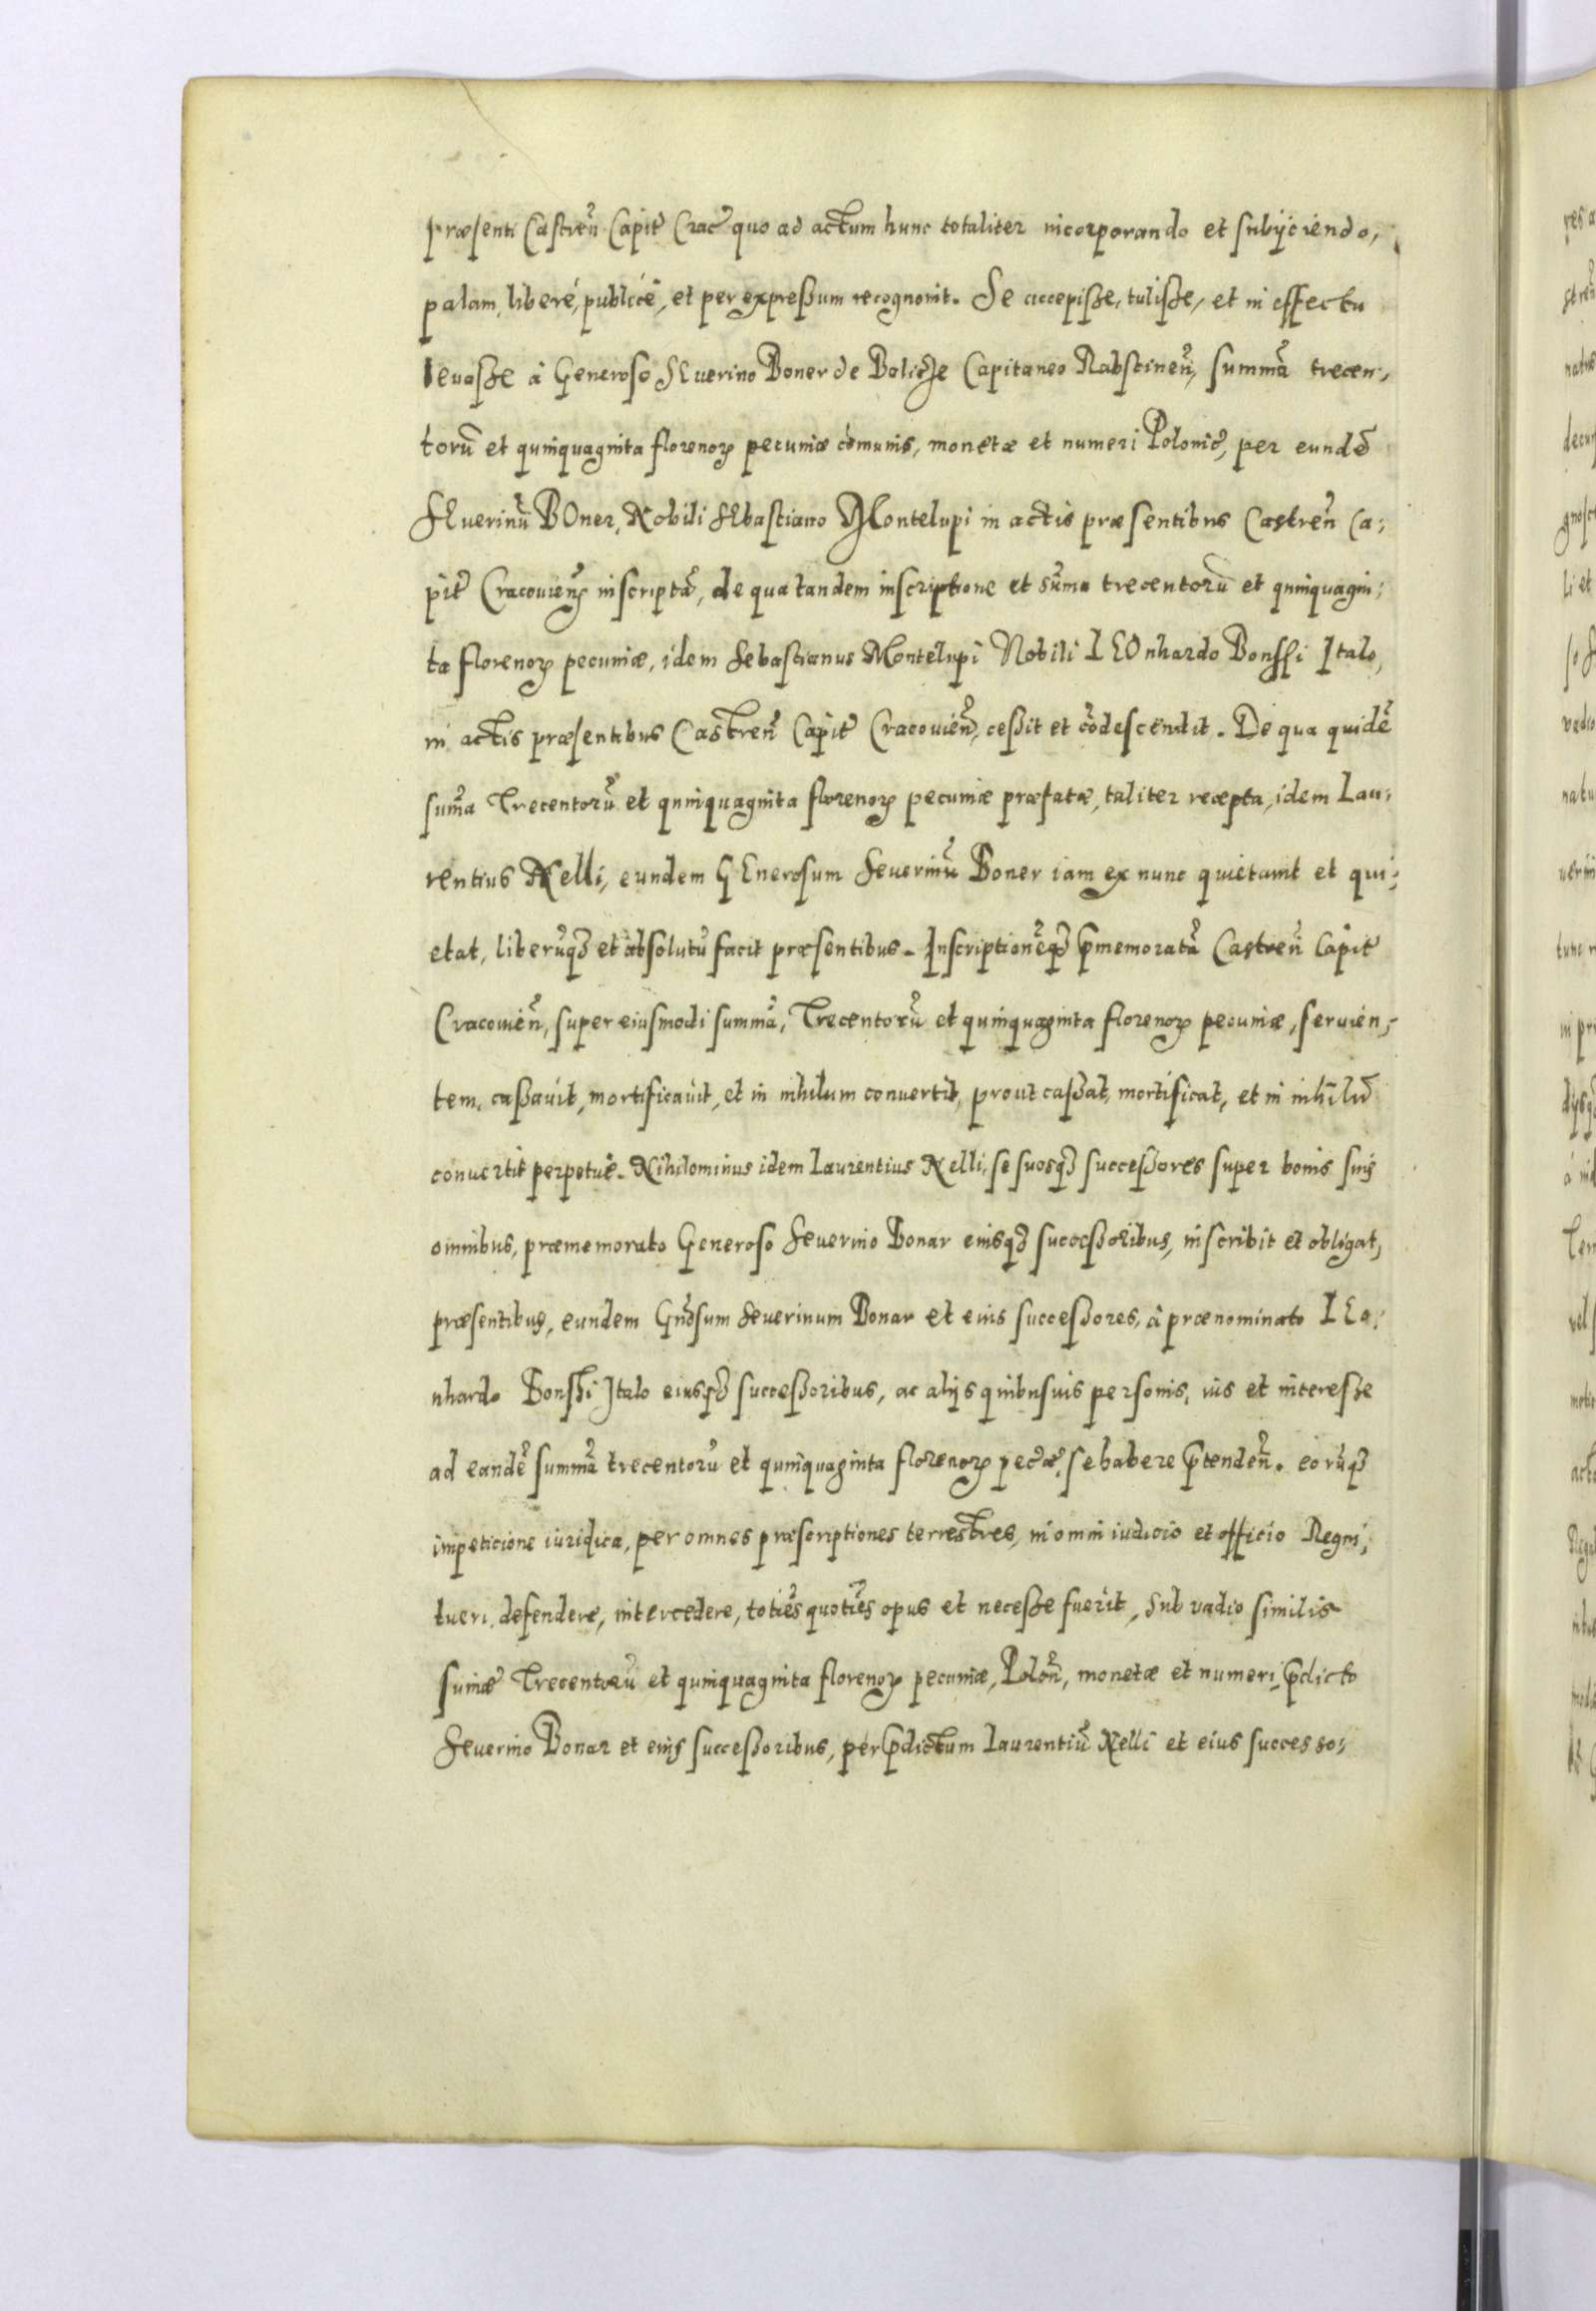 præsenti Castreñ Capit Crac quo ad actum hunc totaliter incorporando et subijciendo,
palam, liberé, publicé, et per expreßum recognovit. Se accepiße, tuliße, et in effectu
levaße à Generoso SEverino Boner de Balicze Capitaneo Rabstineñ, summã trecen,
torũ et quinquaginta florenoꝝ pecuniæ cõmunis, monetæ et numeri Polonic, per eundẽ
SEverinũ BOner, Nobili SEbastiano Montelupi in actis præsentibus Castreñ Ca,
pit Cracovieñ inscriptã, de qua tandem inscriptione et sũma trecentorũ et quinquagin,
ta florenoꝝ pecuniæ, idem Sebastianus Montelupi Nobili LEOnhardo Bonssi Italo,
in actis præsentibus Castreñ Capit Cracovieñ, ceßit et cõdescendit. De qua quidẽ
sum̃a Trecentorũ et quinquaginta florenoꝝ pecuniæ præfatæ, taliter recepta, idem Lau,
rentius Nelli, eundem GEnerosum Severinũ Boner iam ex nunc quietavit et qui,
etat, liberũqꝫ et absolutũ facit præsentibus. Inscriptionẽqꝫ p̃memoratã Castreñ Capit
Cracovieñ, super eiusmodi summã, Trecentorũ et quinquaginta florenoꝝ pecuniæ, servien,
tem, caßavit, mortificavit, et in nihilum convertit, prout caßat, mortificat, et in nihilũ
convertit perpetué. Nihilominus idem Laurentius Nelli, se suosqꝫ succeßores super bonis suis
omnibus, præmemorato Generoso Severino Bonar eiusqꝫ succeßoribus, inscribit et obligat,
præsentibus, eundem Gnõsum Severinum Bonar et eius succeßores, à prænominato LEo,
nhardo Bonßi Italo eiusqꝫ succeßoribus, ac alijs quibusvis personis, ius et intereße
ad eandẽ summã trecentorũ et quinquaginta florenoꝝ pecæ, se habere p̃tendeñ. eorũqꝫ
impeticione iuridica, per omnes præscriptiones terrestres, in omni iudicio et officio Regni,
tueri, defendere, intercedere, toties quoties opus et neceße fuerit, sub vadio similis
sum̃æ Trecentorũ et quinquaginta florenoꝝ pecuniæ, Poloñ, monetæ et numeri, p̃dicto
Severino Bonar et eius succeßoribus, per p̃dictum Laurentiũ Nelli et eius successo,